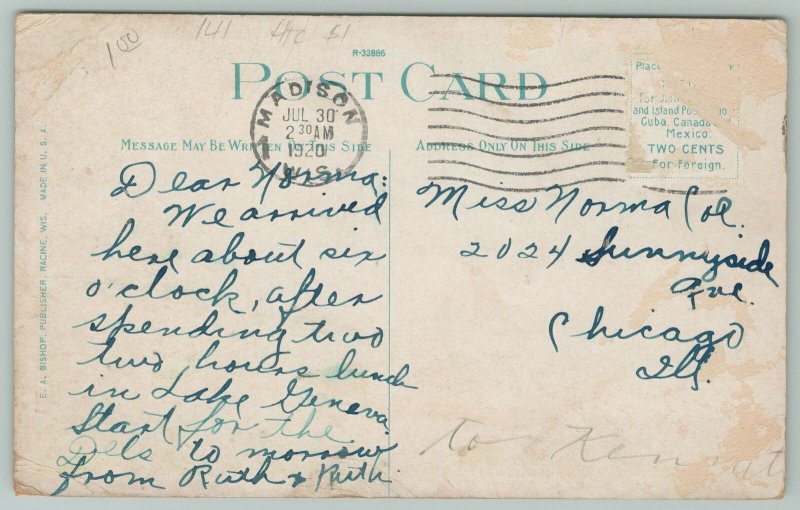 1.00 141
R-32886
POST CARD
MADISON
JUL 30
2 30 AM
1920
WIS.
MESSAGE MAY BE WRITTEN ON THIS SIDE
ADDRESS ONLY ON THIS SIDE
Place
and Island Pos
Cuba, Canada
Mexico.
TWO CENTS
For Foreign.
E. A. BISHOP, PUBLISHER, RACINE, WIS. MADE IN U. S. A.
Dear Norma:
We arrived
here about six
o'clock, after
spending two
two hours lunch
in Lake Geneva.
Start for the
Dels to morrow
from Ruth & Ruth.
Miss Norma Coe.
2024 Sunnyside
Ave.
Chicago
Ill.
to